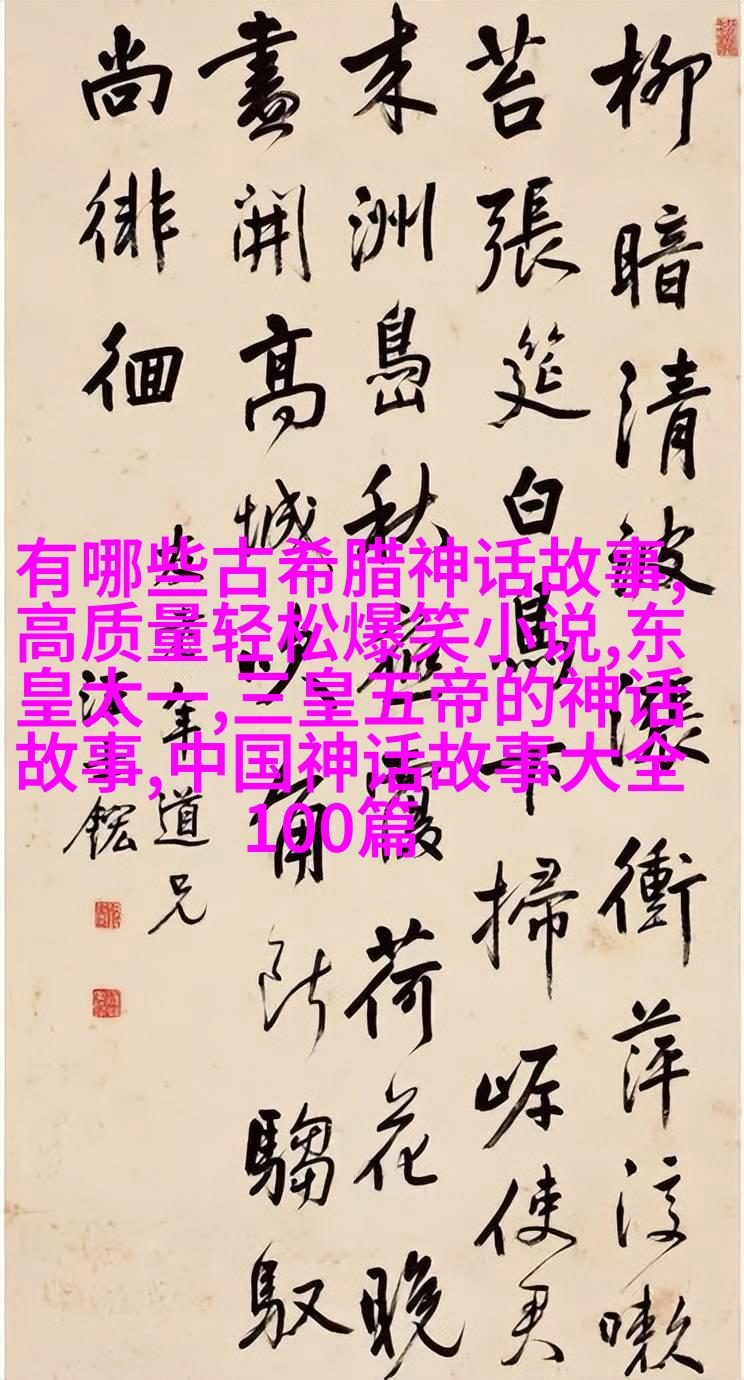 柳暗清波漲衝萍復漱
苔張筵白鳥下掃岸使君
来洲島秋荷花晚
盡開高城吹角断騶馭
尚徘徊
年道兄
有哪些古希腊神话故事,
高质量轻松爆笑小说,东
皇太一,三皇五帝的神话
故事,中国神话故事大全
100篇